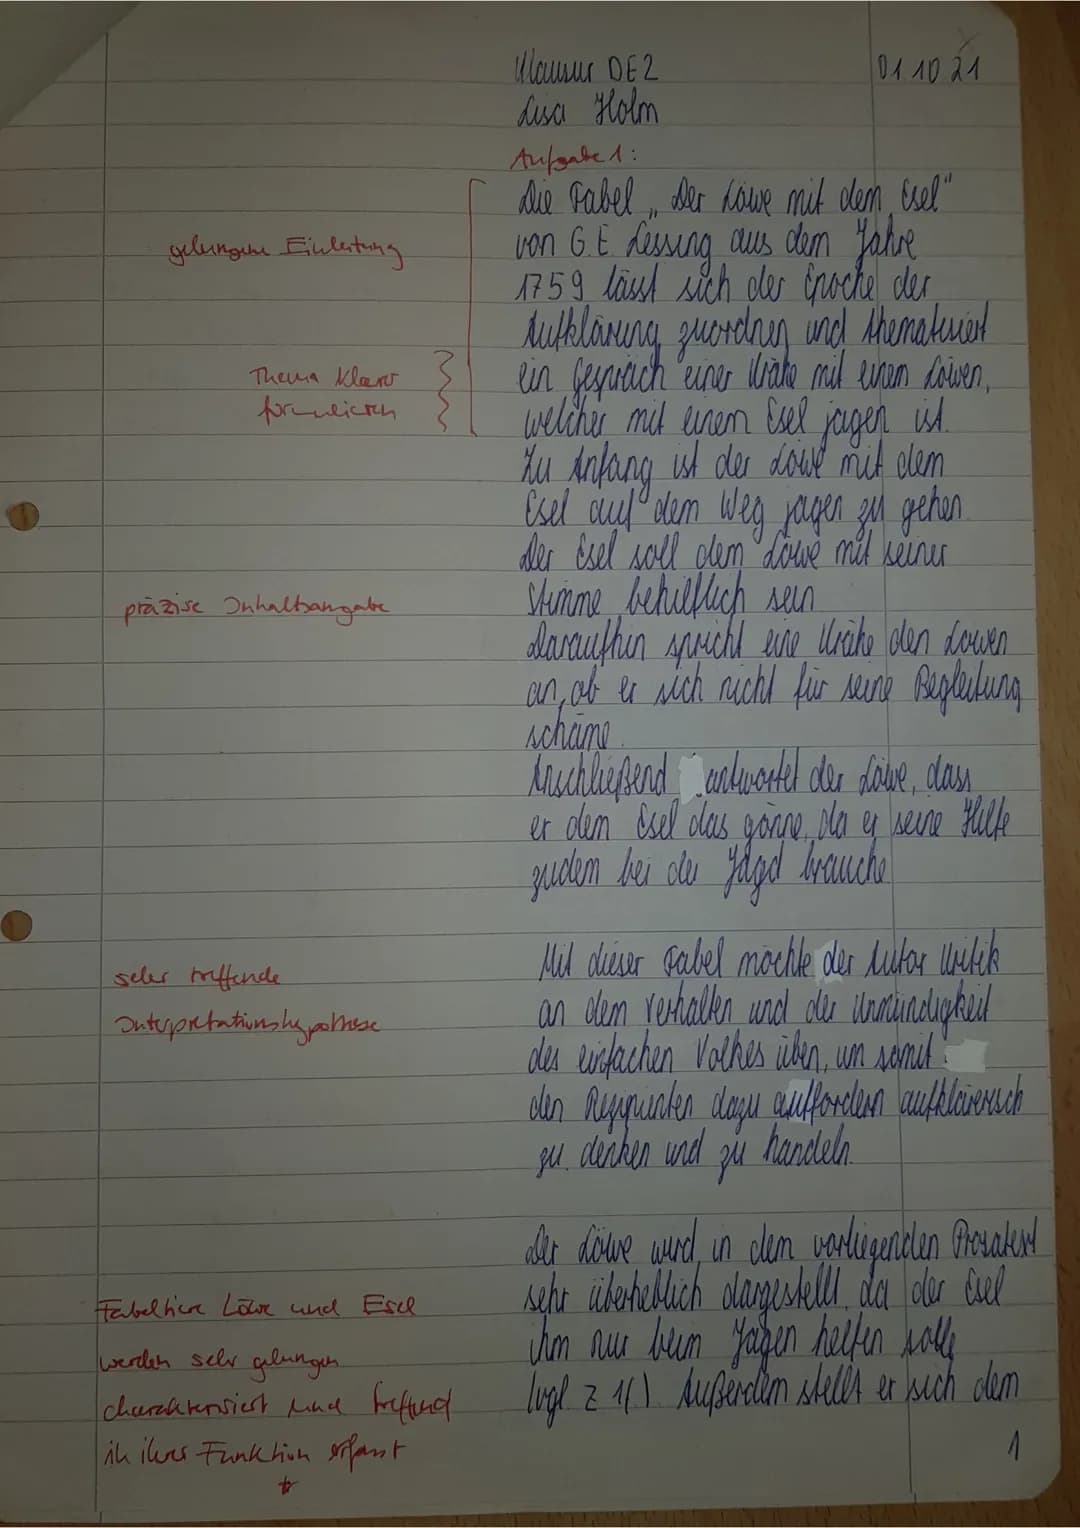 Klausur DE2
01.10.21
Lisa Holm
Aufgabe 1:
Die Fabel „Der Löwe mit dem Esel"
von G.E. Lessing aus dem Jahre
1759 lässt sich der Epoche der
Aufklärung zuordnen und thematisiert
ein Gespräch einer Krähe mit einem Löwen,
welcher mit einem Esel jagen ist.
Zu Anfang ist der Löwe mit dem
Esel auf dem Weg jagen zu gehen.
Der Esel soll dem Löwe mit seiner
Stimme behilflich sein.
Daraufhin spricht eine Krähe den Löwen
an, ob er sich nicht für seine Begleitung
schäme.
Anschließend antwortet der Löwe, dass
er dem Esel das gönne, da er seine Hilfe
zudem bei der Jagd brauche.
Mit dieser Fabel möchte der Autor Kritik
an dem Verhalten und der Unmündigkeit
des einfachen Volkes üben, um somit
den Rezipienten dazu auffordern aufklärerisch
zu denken und zu handeln.
Der Löwe wird in dem vorliegenden Prosatext
sehr überheblich dargestellt, da der Esel
ihm nur beim Jagen helfen solle
(vgl. Z 1f.). Außerdem stellt er sich dem
1
gelungene Einleitung
Thema klarer
formulieren
präzise Inhaltsangabe
sehr treffende
Interpretationshypothese
Fabeltiere Löwe und Esel
werden sehr gelungen
charakterisiert und treffend
in ihrer Funktion erfasst